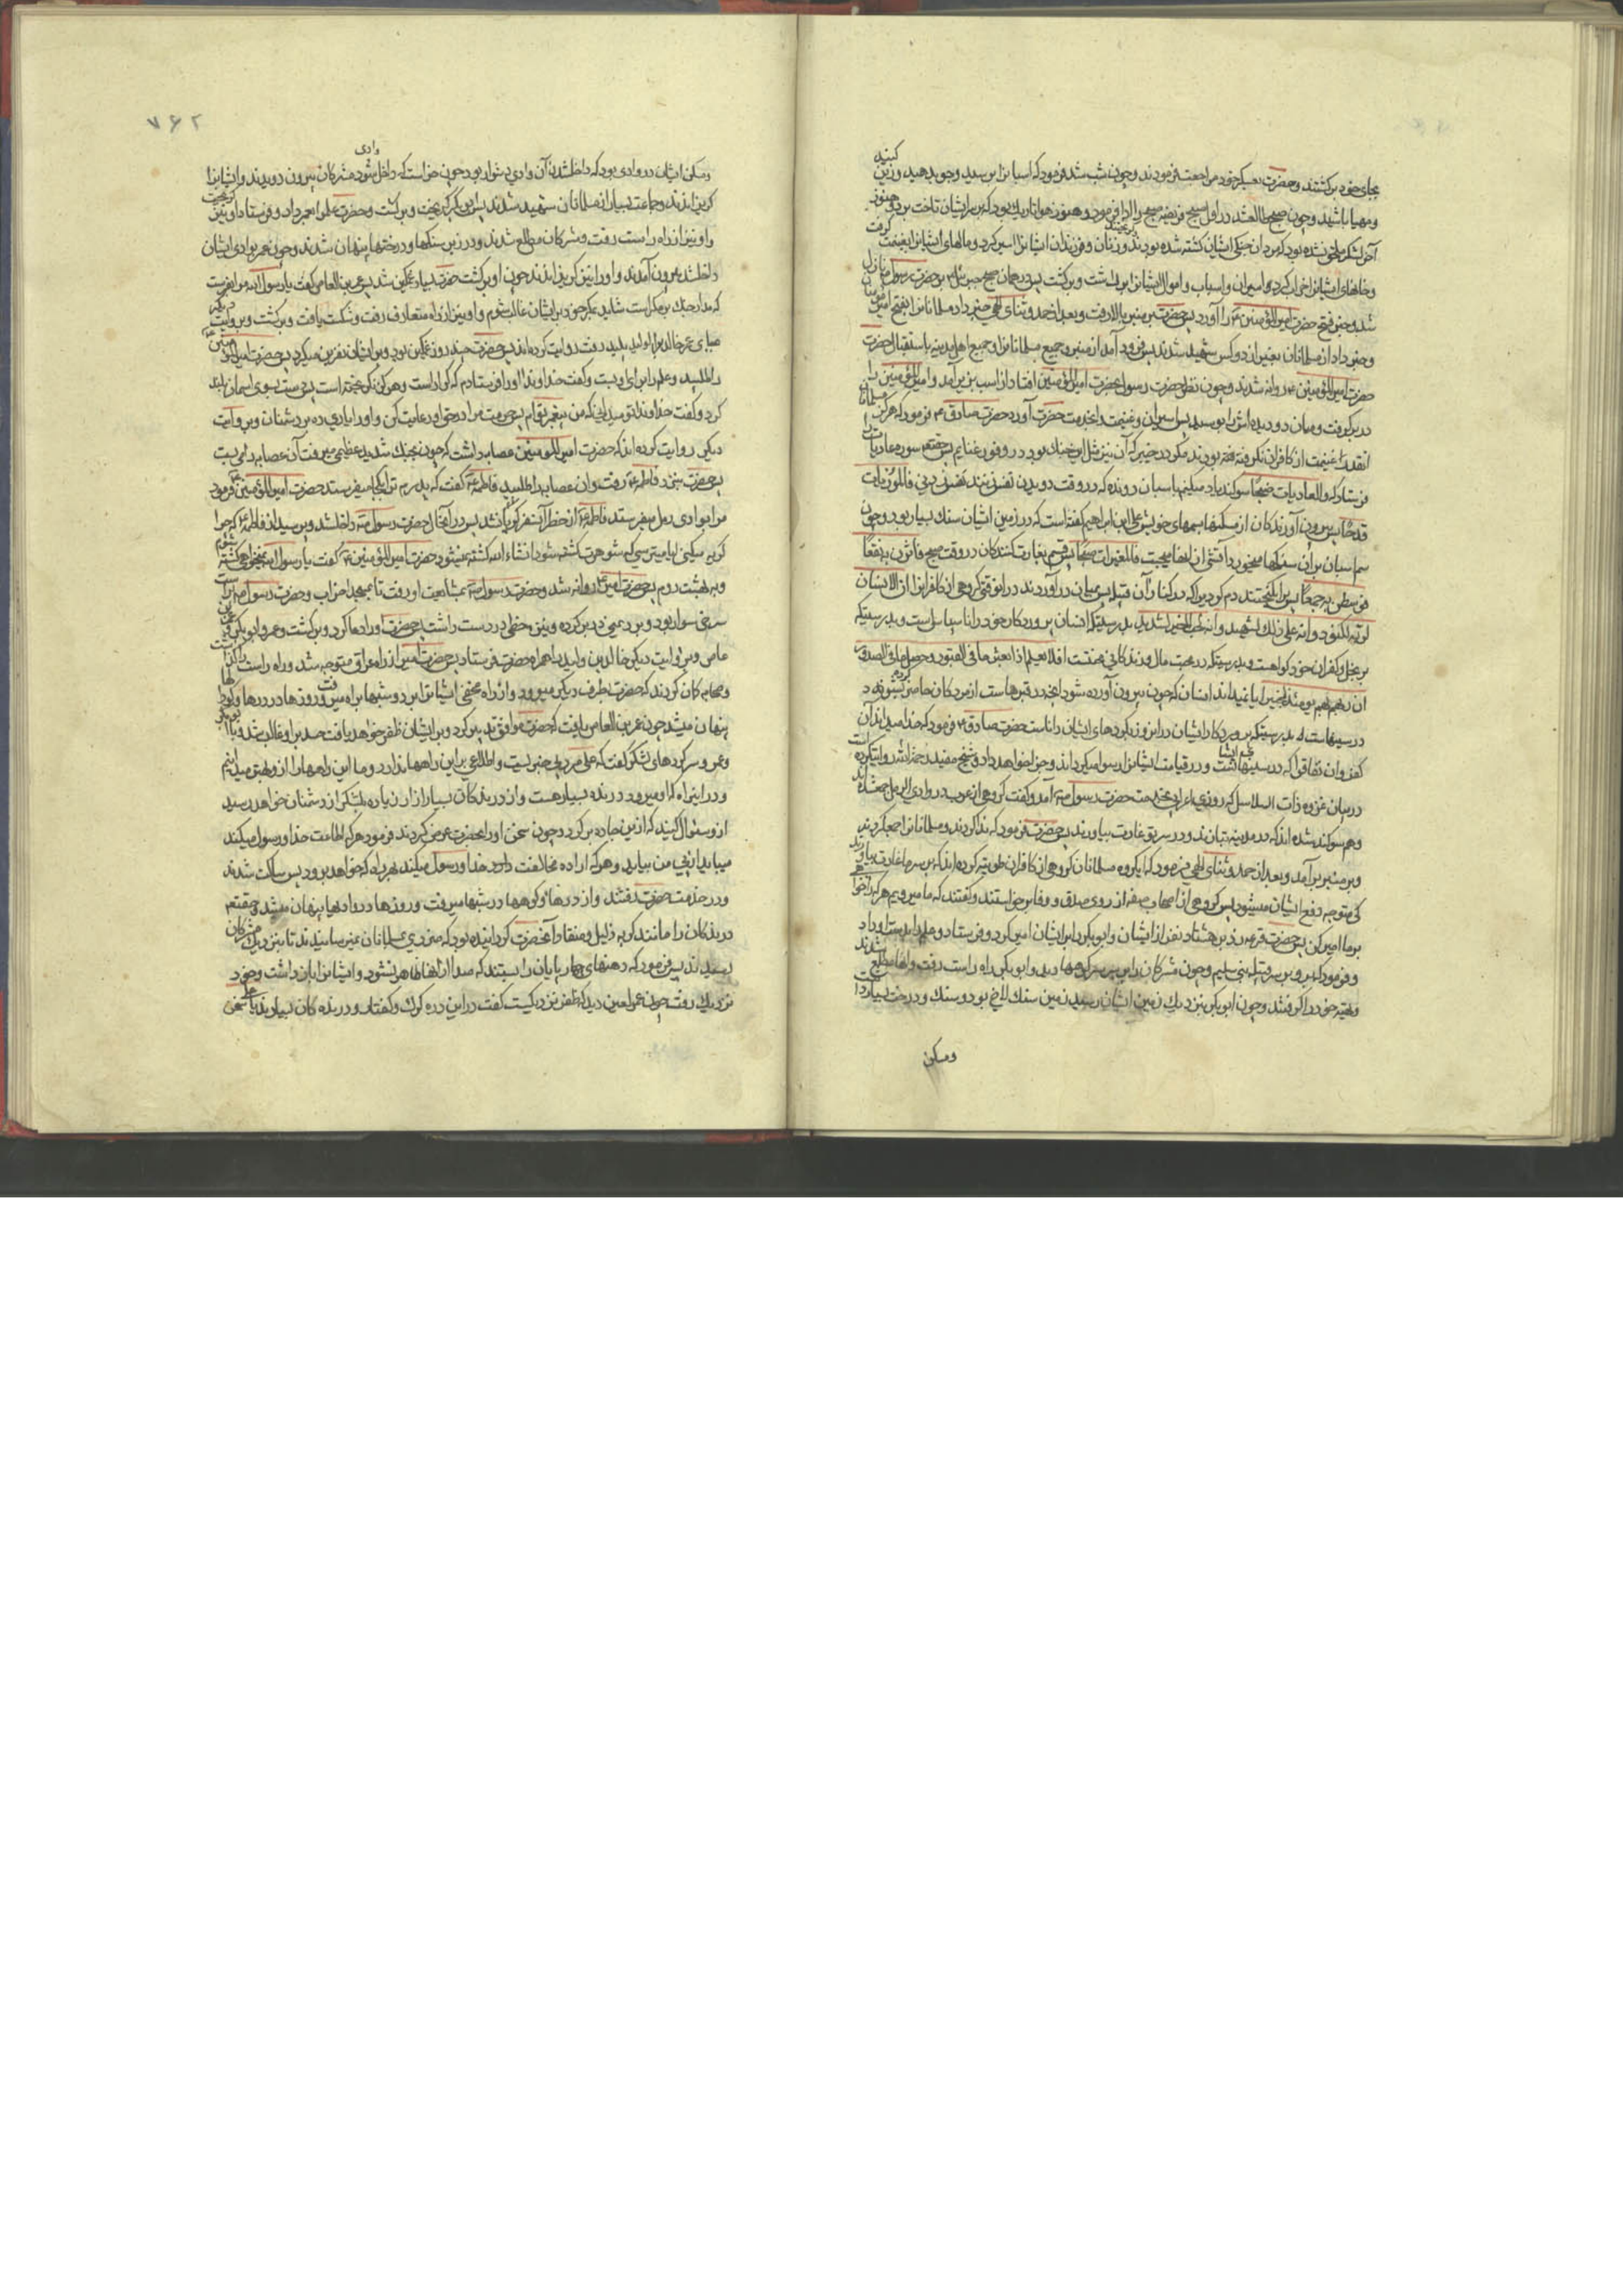 بجای خود برگشتند و حضرت بعسکر خود مراجعت فرمودند و چون شب شد فرمود که اسبانرا برسید و جو بدهید و زین کنید
و مهیا باشید و چون صبح طالع شد در اول صبح فریضه صبح را ادا فرمود و هنوز هوا تاریک بود که بر ایشان تاخت برد و هنوز
آخر لشکر ملحق نشده بود که مردان جنکی ایشان کشته شده بودند و زنان و فرزندان ایشانرا اسیر کرد و مالهای ایشانرا بغنیمت گرفت
و خانهای ایشانرا خراب کرد و اسیران و اسباب و اموال ایشانرا برداشت و برگشت پس در همان صبح جبرئیل بر حضرت رسول نازل
شد و خبر فتح حضرت امیرالمؤمنین را آورد پس حضرت بر منبر بالا رفت و بعد از حمد و ثنای الهی خبر داد مسلمانانرا بفتح امیرالمؤمنین
و خبر داد از مسلمانان بغیر از دو کس شهید شدند پس فرود آمد از منبر و جمیع مسلمانانرا و جمیع اهل مدینه باستقبال حضرت
حضرت امیرالمؤمنین ع روانه شدند و چون نظر حضرت رسول بحضرت امیرالمؤمنین افتاد از اسب بزیر آمد و امیرالمؤمنین را
در بر گرفت و میان دو دیده اش را بوسید پس اسیران و غنیمت را بخدمت حضرت آورد حضرت صادق ع فرمود که هرگز مسلمانان
انقدر غنیمت از کافران نگرفته بودند مگر در خیبر که آن نیز مثل این جنک بود در وفور غنایم پس حقتعالی سوره عادیات را
فرستاد که والعادیات ضبحا سوکند یاد میکنم باسبان دونده که در وقت دویدن نفس زنند نفس زدنی فالموریات
قدحا پس بیرون آورندکان از سنکها بسمهای خویش علی بن ابراهیم گفته است که در زمین ایشان سنک بسیار بود و چون
سم اسبان بران سنکها میخورد آتش از انها میجست فالمغیرات صبحا پس قسم بغارت کنندکان در وقت صبح فاثرن به نقعا
فوسطن به جمعا پس برانکیختند
لربه لکنود و انه علی ذلک لشهید و انه لحب الخیر لشدید بدرستیکه انسان پروردکار خود را ناسپاس است و بدرستیکه
بر بخل و کفران خود کواهست و بدرستیکه در محبت مال و زندکانی افلا یعلم اذا بعثر ما فی القبور و حصل ما فی الصدور
ان ربهم بهم یومئذ لخبیر ایا نمیداند انسان که چون بیرون آورده شود انچه در قبرهاست از مردکان و حاضر کرده شود انچه در
در سینهاست بدرستیکه پروردکار ایشان در انروز بکردهای ایشان داناست حضرت صادق ع فرمود که خدا میداند آن
کفر و ان نفاق را که در سینهای ایشان است و در قیامت ایشانرا رسوا میکرداند و جزا خواهد داد و شیخ مفید روایت کرده است
در بیان غزوه ذات السلاسل که روزی اعرابی بخدمت حضرت رسول آمد و گفت گروهی از عرب در وادی الرمل جمع شده اند
و هم سوکند شده اند که در مدینه بر تو غارت بیاورند پس حضرت فرمود که ندا کردند و مسلمانانرا جمع کردند
و بر منبر برآمد و بعد از حمد و ثنای الهی فرمود که ایکروه مسلمانان کروهی از کافران توطیه کرده اند که بر سر ما غارت بیاورند
کی متوجه دفع ایشان میشود پس کروهی از اصحاب صفه از روی صدق و وفا برخواستند و گفتند که ما میرویم هر که را خواهی
بر ما امیر کن پس حضرت قرعه زد بر هشتاد نفر از ایشان و ابوبکر را بر ایشان امیر کرد و فرستاد و علم را بدست او داد
و فرمود که برو بر سر قبیله بنی سلیم و چون مشرکان را بر سر کوهها دید و ابوبکر راه راست رفت و انها مطلع شدند
و تهیه خود را گرفتند و چون ابوبکر بنزدیک زمین ایشان رسید زمین سنک لاخ بود و سنک و درخت بسیار داشت
ومسکن
۷۶۲
ومسکن ایشان در وادی بود که داخل شدن آن وادی دشوار بود چون خواست که داخل وادی شود مشرکان بیرون دویدند و ایشانرا
گریزاندند و جماعت بسیار از مسلمانان شهید شدند پس ابوبکر گریخت و برگشت و حضرت علم را بعمر داد و فرستاد او نیز گریخت
و او نیز از راه راست رفت و مشرکان مطلع شدند و در زیر سنکها و درختها پنهان شدند و چون عمر بوادی ایشان
داخل شد بیرون آمدند و او را نیز گریزاندند چون او برگشت حضرت بسیار غمکین شد پس عمرو بن العاص گفت یا رسول الله مرا بفرست
که مدار جنک بر مکر است شاید بمکر خود بر ایشان غالب شوم و او نیز از راه متعارف رفت و شکست یافت و برگشت و بروایت دیگر
بجای عمر خالد بن الولید پلید رفت روایت کرده اند پس حضرت چند روز غمکین بود و بر ایشان نفرین میکرد پس حضرت امیرالمؤمنین ع
را طلبید و علم را برای او بست و گفت خداوندا او را فرستادم که کرار است و هرکز نگریخته است پس دست بسوی اسمان بلند
کرد و گفت خداوندا تو میدانی که من پیغمبر توام پس حرمت مرا در حق او رعایت کن و او را یاری ده بر دشمنان و بروایت
دیگر روایت کرده اند که حضرت امیرالمؤمنین عصابه داشت که چون بجنک شدید عظیمی میرفت آن عصابه را می بست
پس حضرت بنزد فاطمه ع رفت و ان عصابه را طلبید فاطمه ع گفت که پدرم ترا بکجا میفرستد حضرت امیرالمؤمنین ع فرمود
مرا بوادی رمل میفرستد فاطمه ع از خطر آن سفر گریان شد پس در انحال حضرت رسول ص داخل شد و پرسید از فاطمه ع که چرا
گریه میکنی ایا میترسی که شوهرت کشته شود انشاء الله کشته نمیشود حضرت امیرالمؤمنین ع گفت یا رسول الله نمیخواهی کشته شوم
و به بهشت روم پس حضرت امیر ع روانه شد و حضرت رسول ص بمشایعت او رفت تا بمسجد احزاب و حضرت رسول ص بر است
سرخی سوار بود و برد یمنی در بر کرده و نیزه خطی در دست داشت پس حضرت او را دعا کرد و برگشت و عمر و ابوبکر و عمرو بن
عاص و بروایت دیگر خالد بن ولید را همراه حضرت فرستاد پس حضرت امیر از راه عراق متوجه شد و راه راست را گذاشت
و صحابه گمان کردند که حضرت بطرف دیگر میرود و از راه مخفی ایشانرا برد و شبها براه میرفت و روزها در دره‌ها و کوهها
پنهان میشد چون عمرو بن العاص یافت که حضرت موافق تدبیر کرد و بر ایشان ظفر خواهد یافت حسد بر او غالب شد و با ابوبکر
و عمر و سرکرده‌های لشکر گفت که علی مرد بی خبریست و اطلاعی بر این راهها ندارد و ما این راهها را از او بهتر میدانیم
و در اینراه که او میرود درنده بسیار هست و از درندکان بسیار آزار زیاده بلشکر از دشمنان خواهد رسید
از او سئوال کنید که ازین جاده برگردد چون سخن او را بحضرت عرض کردند فرمود هر که اطاعت خدا و رسول میکند
میباید از پی من بیاید و هر که اراده مخالفت دارد خدا و رسول میکند بهر راه که خواهد برود پس ساکت شدند
و در خدمت حضرت رفتند و از دره‌ها و کوهها در شبها میرفت و روزها در وادیها پنهان میشد و حقتعالی
درندکان را مانند گربه ذلیل و منقاد آنحضرت گردانیده بود که ضرری بمسلمانان نمیرسانیدند تا بنزدیک مشرکان
رسیدند پس فرمود که دهنهای چهارپایان را بستند که صدا از انها ظاهر نشود و ایشانرا باز داشت و خود
نزدیک رفت چون عمر لعین دید که ظفر نزدیکست گفت در این دره گرک و کفتار و درنده کان بسیارند با علی سخن